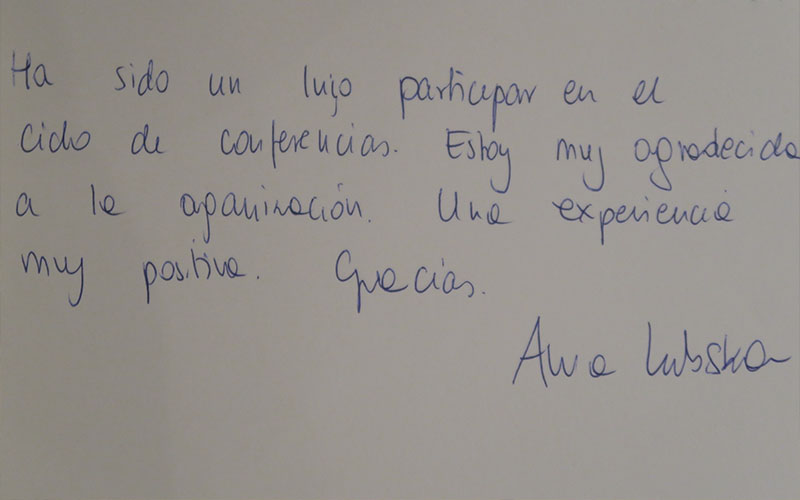 Ha sido un lujo participar en el
ciclo de conferencias. Estoy muy agradecida
a la organización. Una experiencia
muy positiva. Gracias.